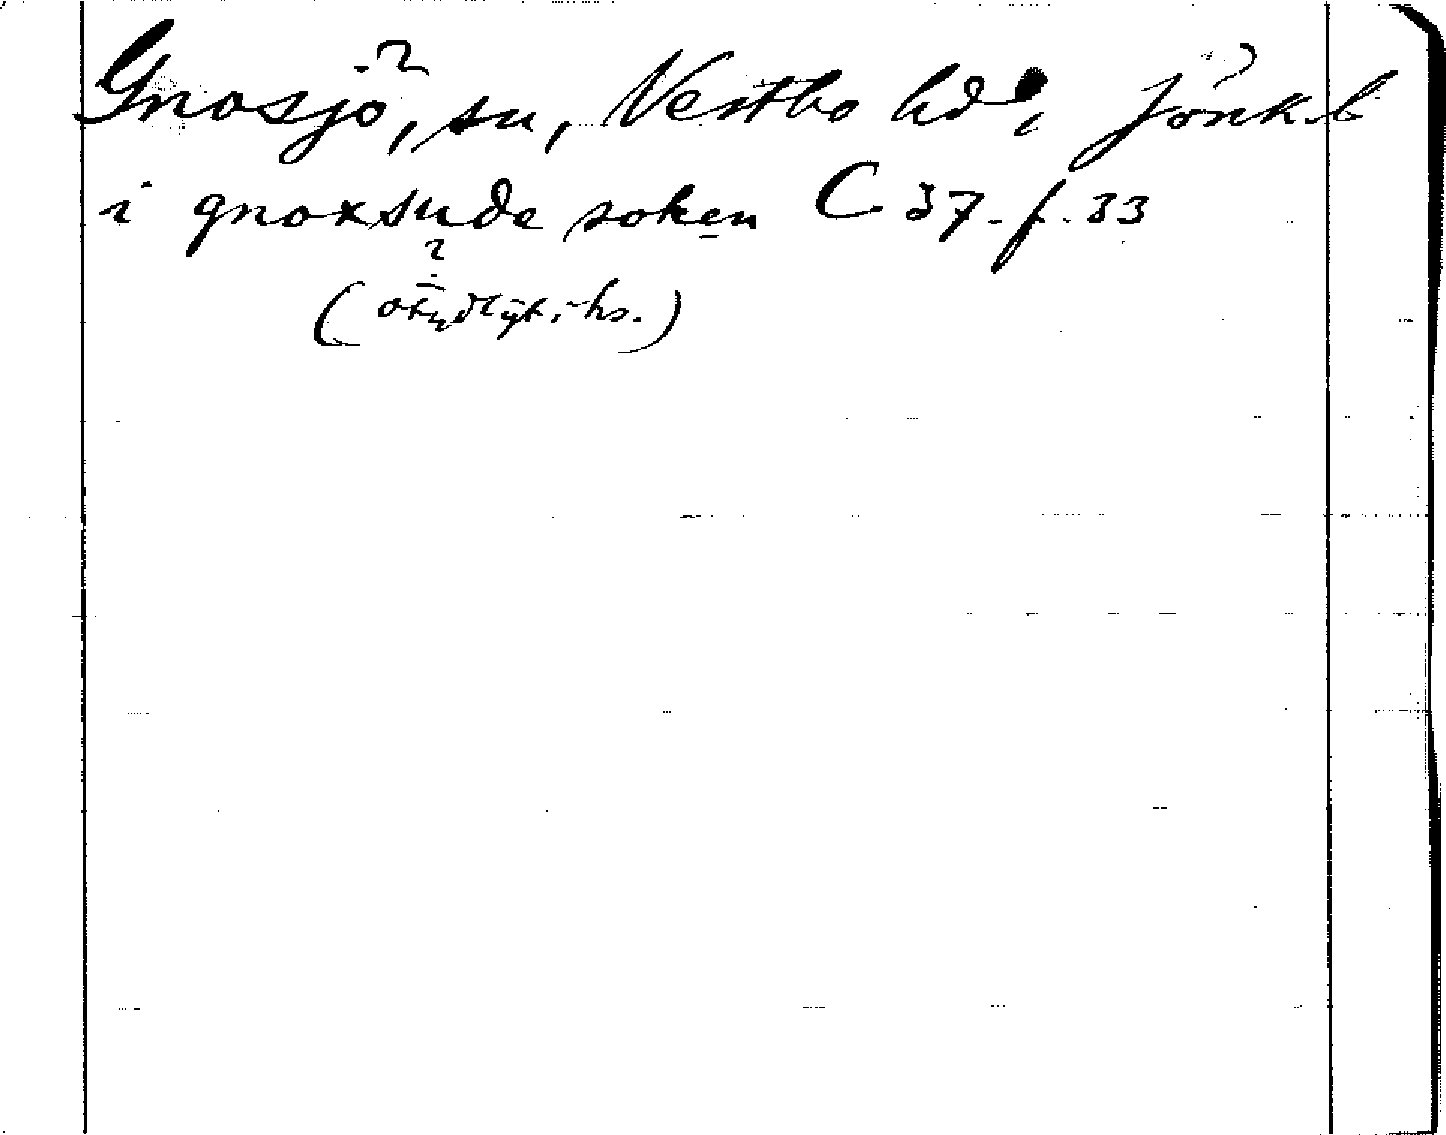 Gnosjö, sn, Vestbo hd, Jönk. l
i gnoxsude soken C 37. f. 33
?
(otydligt i hs.)